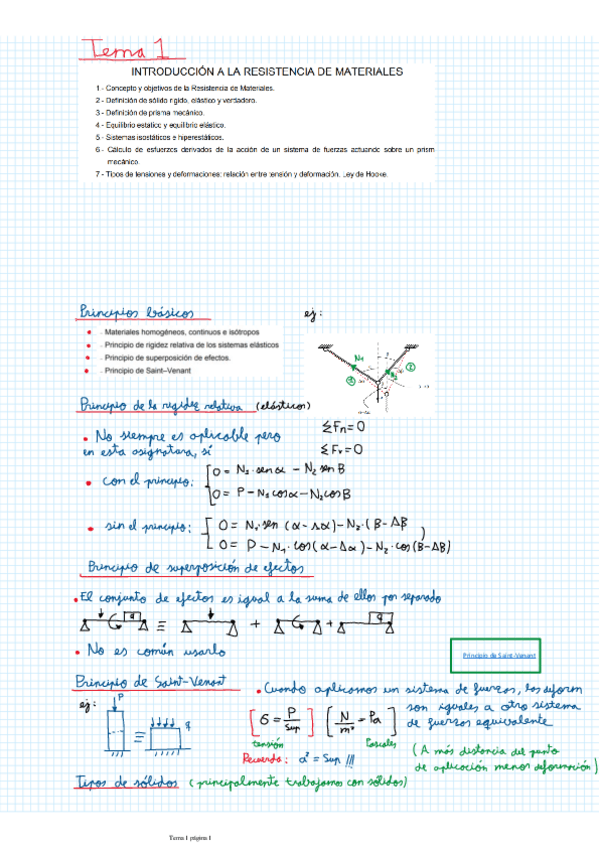 Tema 1
INTRODUCCIÓN A LA RESISTENCIA DE MATERIALES
1 - Concepto y objetivos de la Resistencia de Materiales.
2 - Definición de sólido rígido, elástico y verdadero.
3 - Definición de prisma mecánico.
4 - Equilibrio estático y equilibrio elástico.
5 - Sistemas isostáticos e hiperestáticos.
6 - Cálculo de esfuerzos derivados de la acción de un sistema de fuerzas actuando sobre un prisma
mecánico.
7 - Tipos de tensiones y deformaciones: relación entre tensión y deformación. Ley de Hooke.
Principios básicos
ej:
- Materiales homogéneos, continuos e isótropos
- Principio de rigidez relativa de los sistemas elásticos
- Principio de superposición de efectos.
- Principio de Saint–Venant
N1
N2
Principio de la rigidez relativa (elásticos)
• No siempre es aplicable pero
en esta asignatura, sí
ΣFn=0
ΣFv=0
• con el principio:
0 = N1·sen α - N2 sen B
0 = P - N1 cos α - N2 cos B
• sin el principio:
0 = N1·sen (α-Δα) - N2·(B-ΔB)
0 = P - N1·cos(α-Δα) - N2·cos(B-ΔB)
Principio de superposición de efectos
• El conjunto de efectos es igual a la suma de ellos por separado
q ≡ + + q
• No es común usarlo
Principio de Saint-Venant
Principio de Saint-Venant
• Cuando aplicamos un sistema de fuerzas, los deform
son iguales a otro sistema
de fuerzas equivalente
ej:
P
≡
q
[σ = P/Sup] [N/m² = Pa]
tensión
Pascales
Recuerda: a² = Sup !!!
(A más distancia del punto
de aplicación menor deformación)
Tipos de sólidos (principalmente trabajamos con sólidos)
Tema 1 página 1